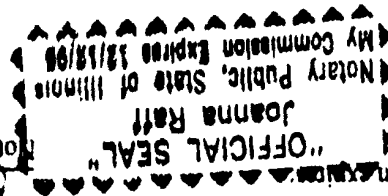 "OFFICIAL SEAL"
Joanna Raff
Notary Public, State of Illinois
My Commission Expires